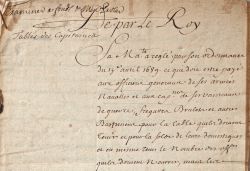 De par le Roy
Tables des Capitaines
Sa Ma.té a reglé par son ordonnance
du 15 avril 1689 ce qui doit estre payé
aux officiers generaux de ses armées
Navalles et aux cap.nes de ses vaisseaux
de guerre, fregattes, Brulots et autres
Bastimens pour la table qu'ils doivent
tenir et pour la solde de leurs domestiques
et en mesme tems le nombre
qu'ils doivent